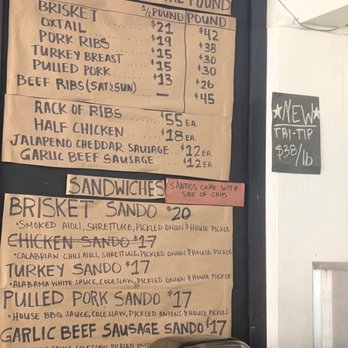 THE POUND
1/2 POUND POUND
BRISKET $21 $42
OXTAIL $19 $38
PORK RIBS $15 $30
TURKEY BREAST $15 $30
PULLED PORK $13 $26
BEEF RIBS (SAT & SUN) — $45
RACK OF RIBS $55 EA
HALF CHICKEN $18 EA.
JALAPENO CHEDDAR SAUSAGE $12 EA
GARLIC BEEF SAUSAGE $12 EA
SANDWICHES
SANDOS COME WITH
SIDE OF CHIPS
BRISKET SANDO $20
• SMOKED AIOLI, SHRETTUCE, PICKLED ONION & HOUSE PICKLE
CHICKEN SANDO $17
• CALABRIAN CHILI AIOLI, SHRETTUCE, PICKLED ONION & HOUSE PICKLE
TURKEY SANDO $17
• ALABAMA WHITE SAUCE, COLESLAW, PICKLED ONION & HOUSE PICKLE
PULLED PORK SANDO $17
• HOUSE BBQ SAUCE, COLESLAW, PICKLED ONIONS & HOUSE PICKLE
GARLIC BEEF SAUSAGE SANDO $17
SAUCE, COLESLAW, PICKLED
NEW
TRI-TIP
$38/lb